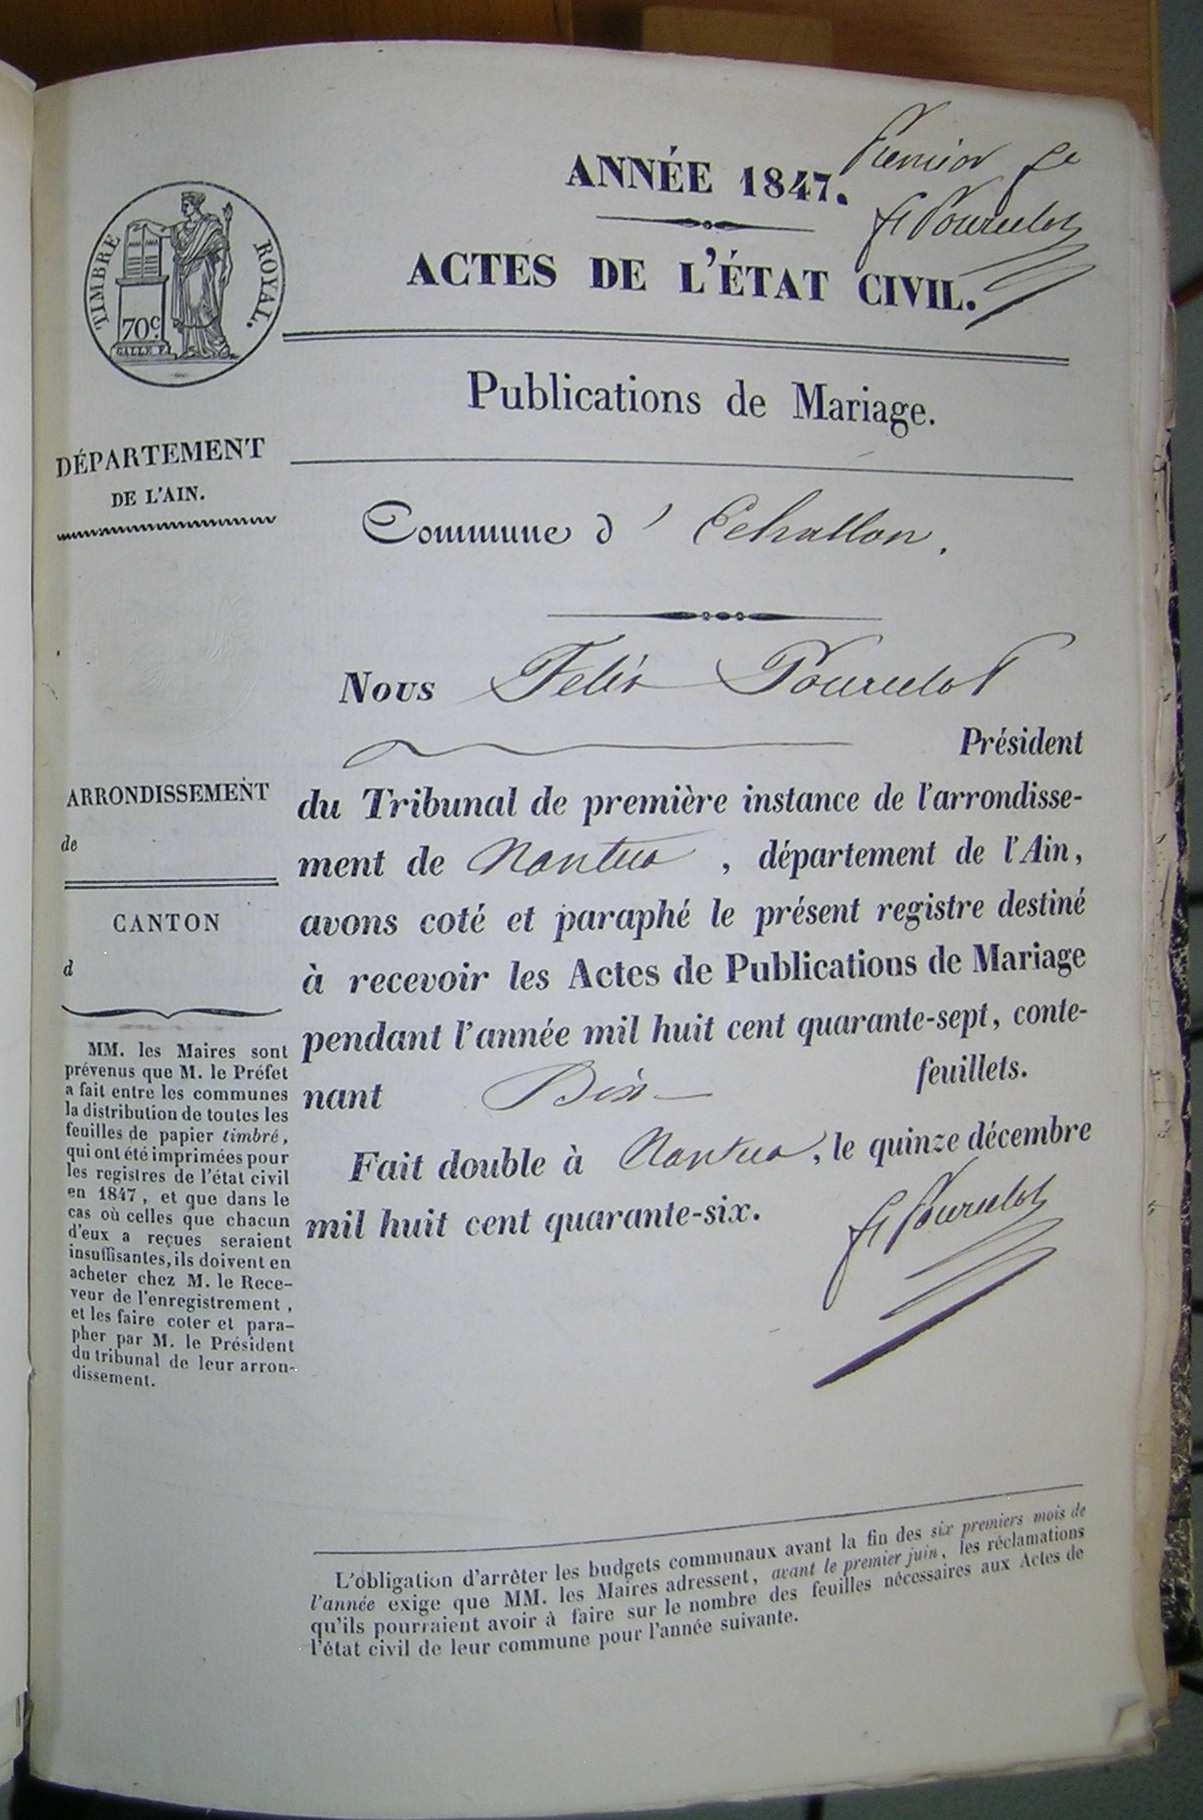 ANNÉE 1847.
Premier
f. Pourcelot
ACTES DE L'ÉTAT CIVIL.
TIMBRE ROYAL.
70c.
GALLE F.
Publications de Mariage.
DÉPARTEMENT
DE L'AIN.
Commune d' Echallon.
Nous Felix Pourcelot
Président
du Tribunal de première instance de l'arrondisse-
ment de Nantua, département de l'Ain,
avons coté et paraphé le présent registre destiné
à recevoir les Actes de Publications de Mariage
pendant l'année mil huit cent quarante-sept, conte-
nant Dix feuillets.
Fait double à Nantua, le quinze décembre
mil huit cent quarante-six.
f. Pourcelot
ARRONDISSEMENT
de
CANTON
d
MM. les Maires sont
prévenus que M. le Préfet
a fait entre les communes
la distribution de toutes les
feuilles de papier timbré,
qui ont été imprimées pour
les registres de l'état civil
en 1847, et que dans le
cas où celles que chacun
d'eux a reçues seraient
insuffisantes, ils doivent en
acheter chez M. le Rece-
veur de l'enregistrement,
et les faire coter et para-
pher par M. le Président
du tribunal de leur arron-
dissement.
L'obligation d'arrêter les budgets communaux avant la fin des six premiers mois de
l'année exige que MM. les Maires adressent, avant le premier juin, les réclamations
qu'ils pourraient avoir à faire sur le nombre des feuilles nécessaires aux Actes de
l'état civil de leur commune pour l'année suivante.